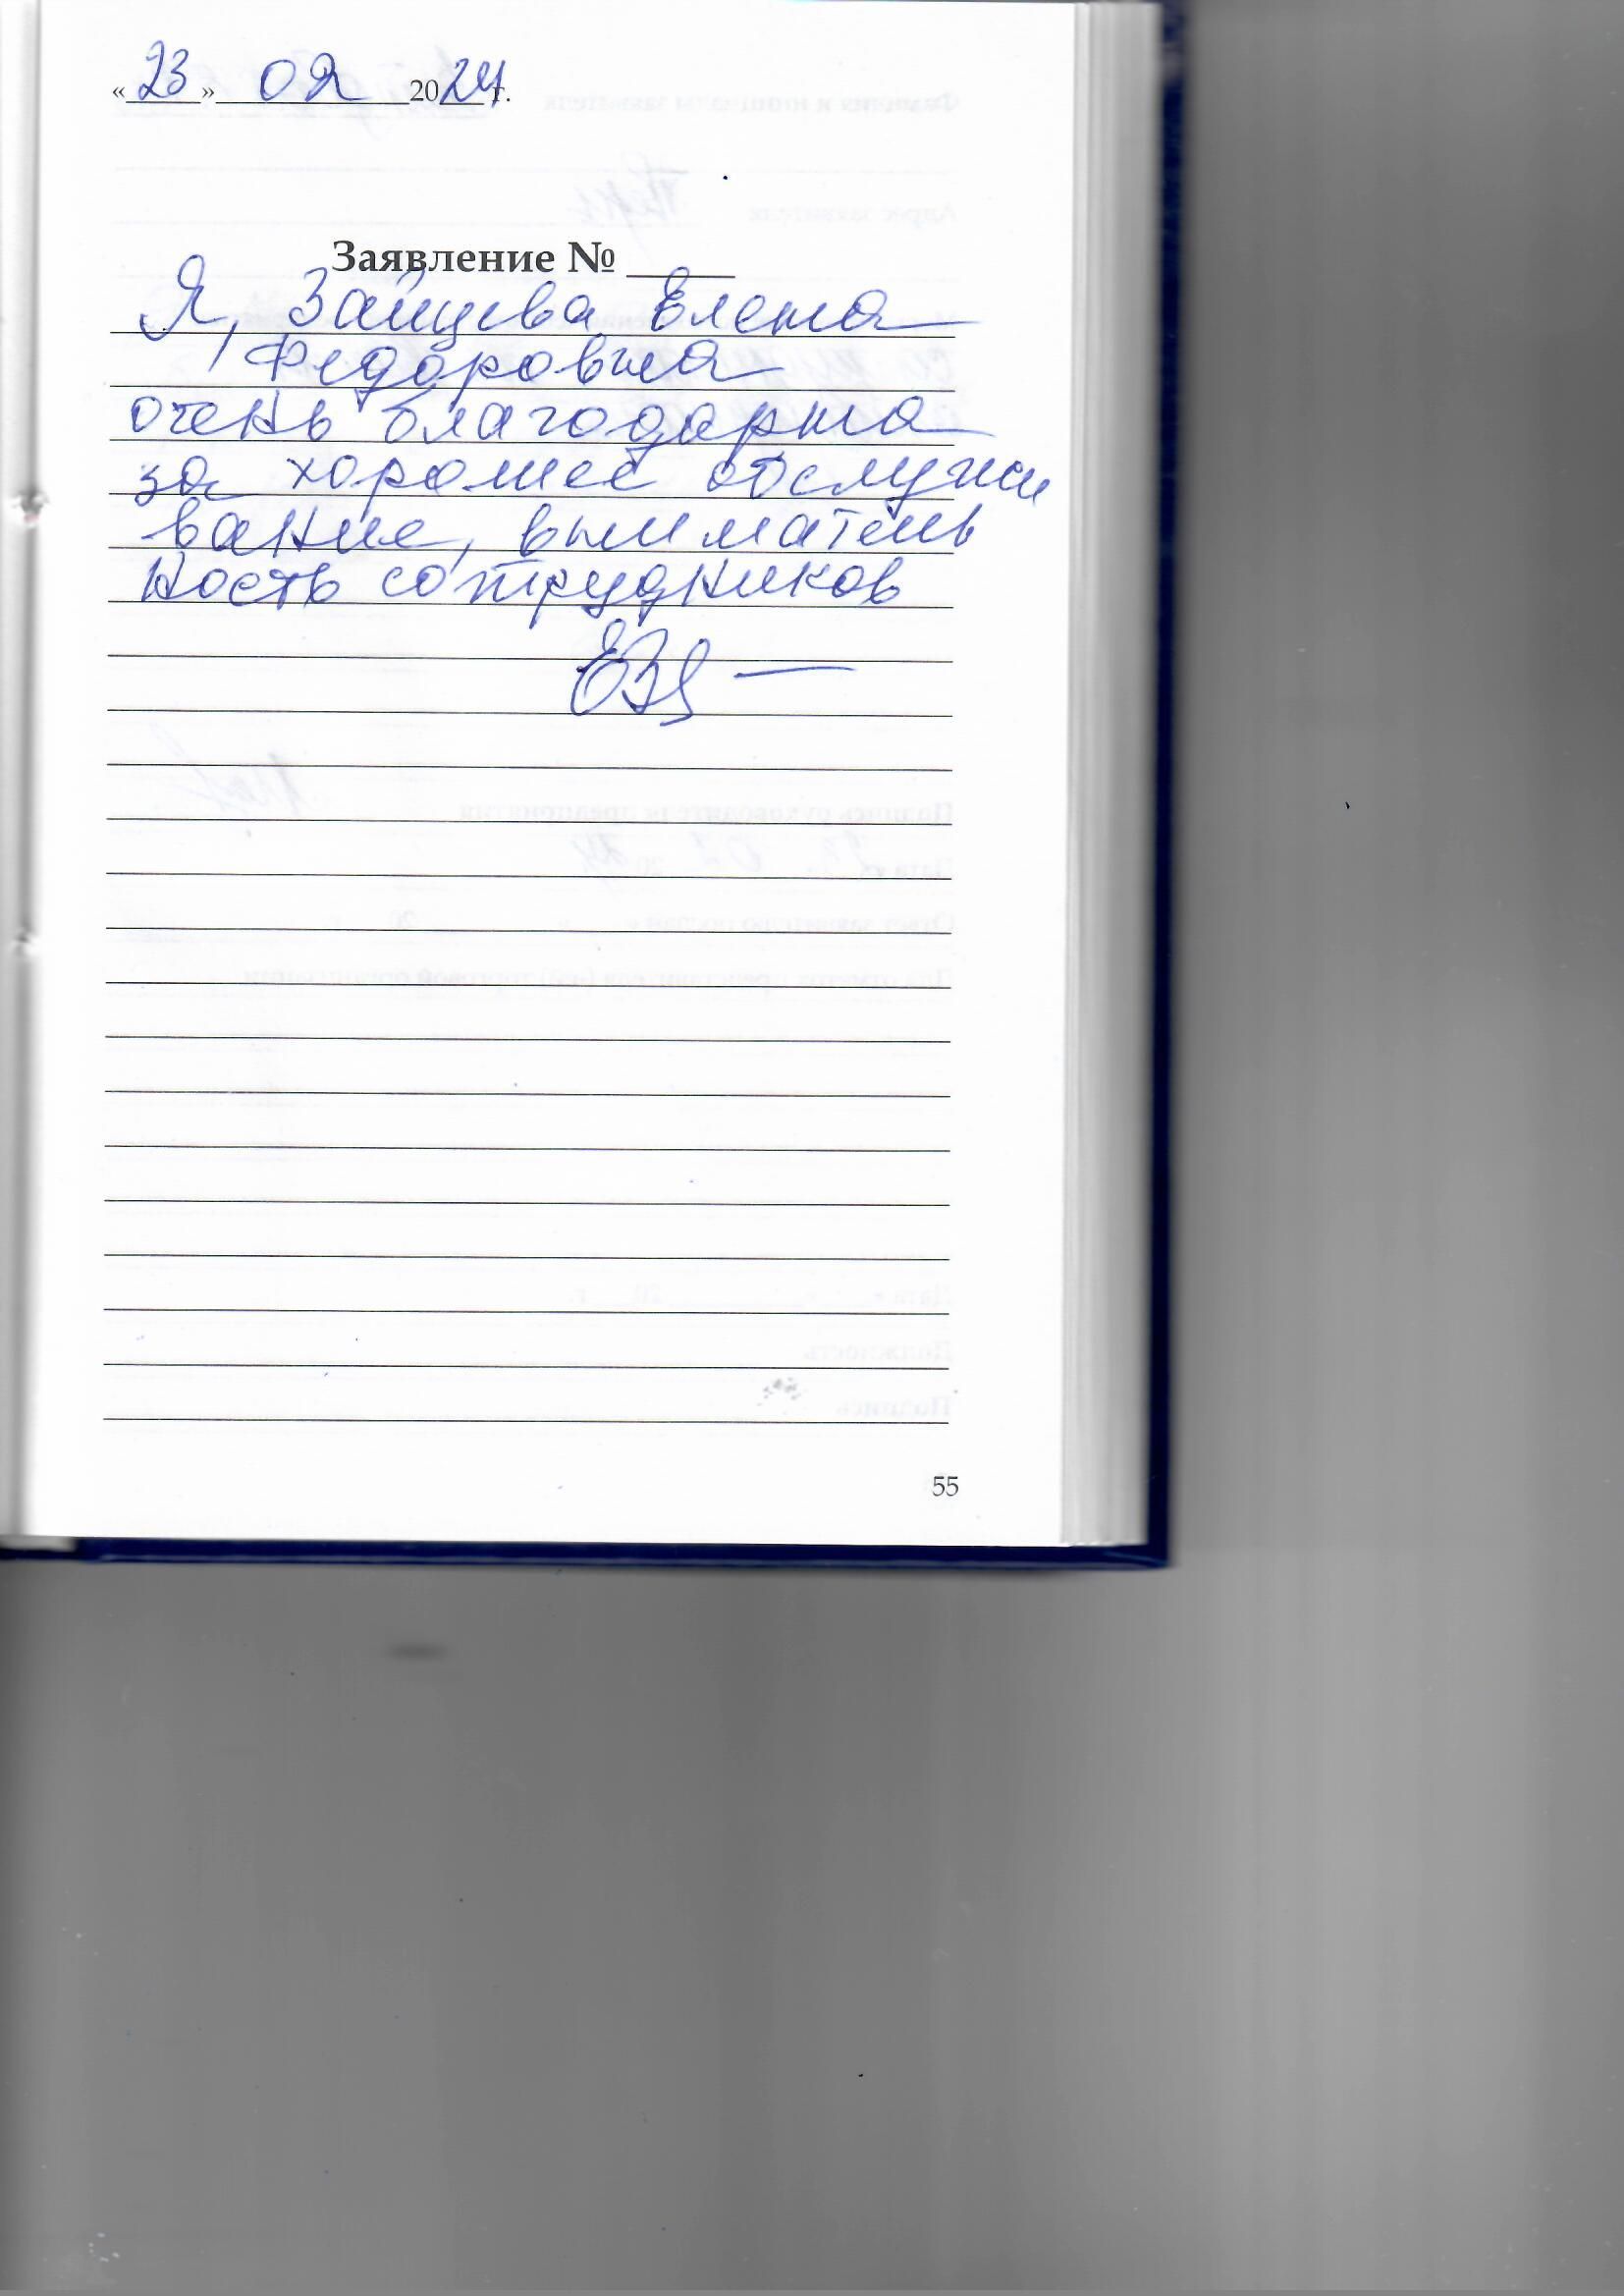 «23» 02 2024 г.
Заявление №
Я, Зайцева Елена
Федоровна
очень благодарна
за хорошее обслужи
вание, вниматель
ность сотрудников
55